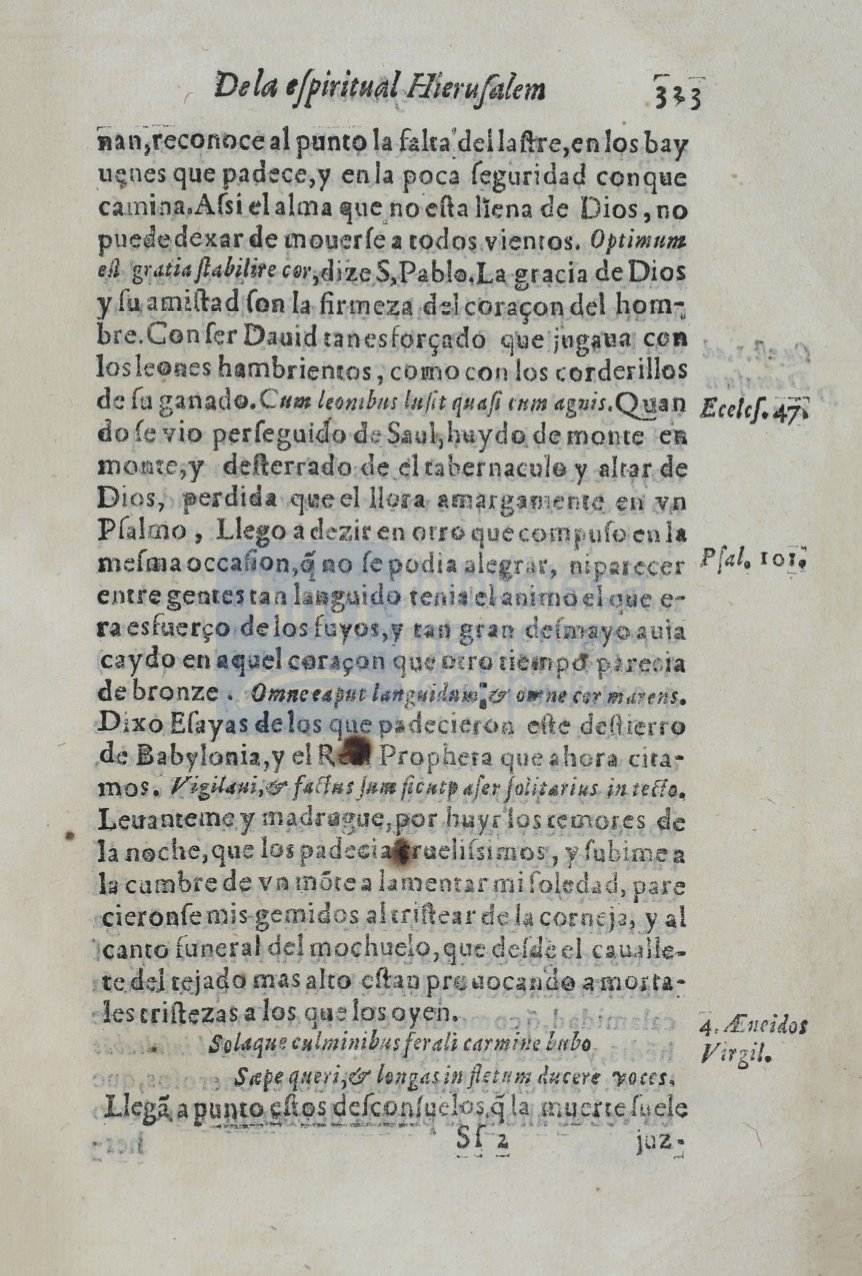 De la eſpiritual Hieruſalem 323
nan, reconoce al punto la falta del laſtre, en los bay
uenes que padece, y en la poca ſeguridad con que
camina. Aſsi el alma que no eſta llena de Dios, no
puede dexar de mouerſe a todos vientos. Optimum
eſt gratia ſtabilire cor, dize S. Pablo. La gracia de Dios
y ſu amiſtad ſon la firmeza del coraçon del hom-
bre. Con ſer Dauid tan esforçado que jugaua con
los leones hambrientos, como con los corderillos
de ſu ganado. Cum leonibus luſit quaſi cum agnis. Quan
do ſe vio perſeguido de Saul, huydo de monte en
monte, y deſterrado de el tabernaculo y altar de
Dios, perdida que el llora amargamente en vn
Pſalmo, Llego a dezir en otro que compuſo en la
meſma occaſion, q̃ no ſe podia alegrar, ni parecer
entre gentes tan languido tenia el animo el que e-
ra esfuerço de los ſuyos, y tan gran deſmayo auia
caydo en aquel coraçon que otro tiempo parecia
de bronze. Omne caput languidum, & omne cor mærens.
Dixo Eſayas de los que padecieron eſte deſtierro
de Babylonia, y el Real Propheta que ahora cita-
mos. Vigilaui, & factus ſum ſicut paſer ſolitarius in tecto.
Leuanteme y madrugue, por huyr los temores de
la noche, que los padecia crueliſsimos, y ſubime a
la cumbre de vn mõte a lamentar mi ſoledad, pare
cieronſe mis gemidos al triſtear de la corneja, y al
canto funeral del mochuelo, que deſde el cauallе-
te del tejado mas alto eſtan prouocando a morta-
les triſtezas a los que los oyen.
Solaque culminibus ferali carmine bubo
Sæpe queri, & longas in fletum ducere voces.
Llegã a punto eſtos deſconſuelos, q̃ la muerte ſuele
Sſ 2 juz-
Eccleſ. 47.
Pſal. 101.
4. Æneidos
Virgil.